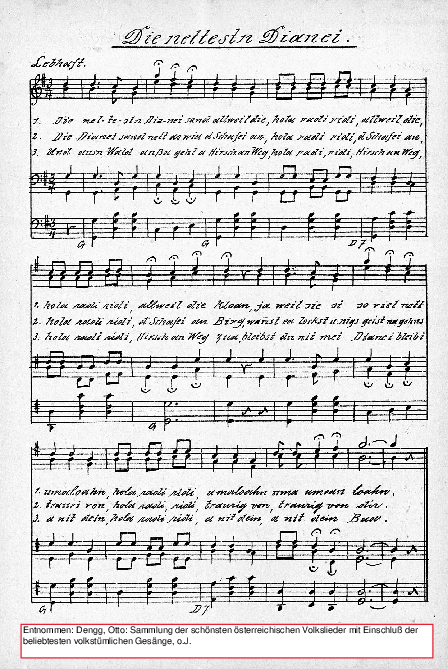 Die nettestn Dianei.
Lebhaft.
1. Die net-te-stn Dia-nei sand allweil die, hola radi ridi, allweil die,
2. Die Dianei sand nett so wia d'Schafei an, hola radi ridi, d'Schafei an,
3. Und ausn Wald außa geht a Hirsch an Weg, hola radi, ridi, Hirsch an Weg,
G G D7
1. hola radi ridi, allweil die kloan, ja weil sie si so viel nett
2. hola radi ridi, d'Schafei am Birg, wannst en lockst u nigs geist
3. hola radi ridi, Hirsch an Weg
D G
1. umaloahn, hola radi ridi, umaloahn uma loahn.
2. hola radi ridi, traurig von, traurig von dir.
3. a nit dein, hola radi ridi, a nit dein, a nit dein Bua.
G D7 G
Entnommen: Dengg, Otto: Sammlung der schönsten österreichischen Volkslieder mit Einschluß der
beliebtesten volkstümlichen Gesänge, o.J.